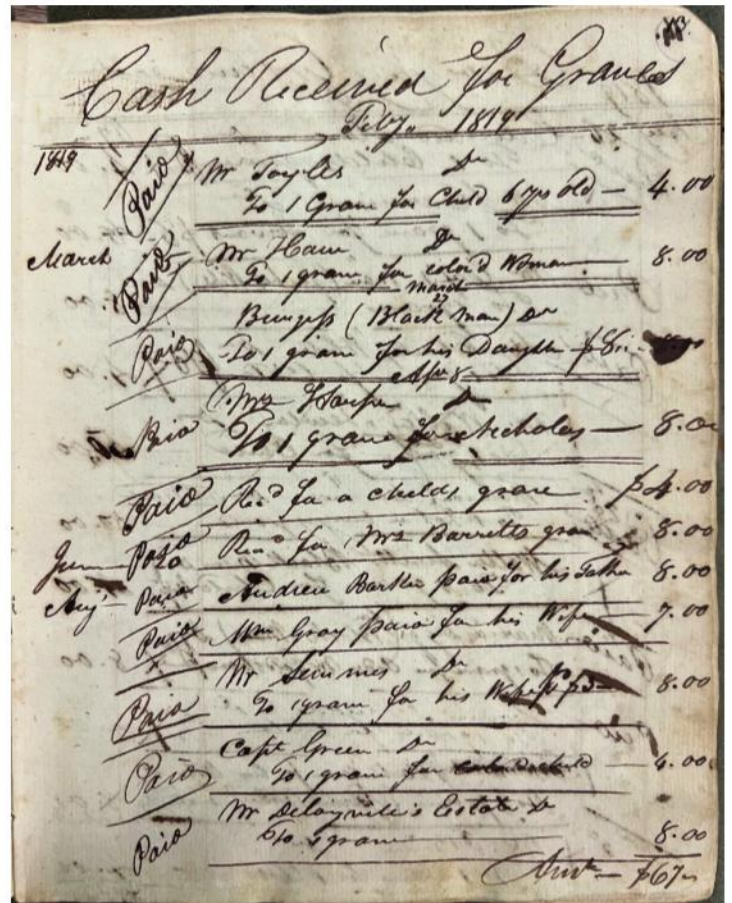 Cash Received for Graves
Feby,, 1819
1819 Paid Mr Dr
To 1 Grave for Child 6 yrs old — 4.00
March Paid Mr Dr
To 1 grave for color'd Woman — 8.00
March 27
Burgess (Black Man) Dr
Paid To 1 grave for his Daughter $8
Apr 8
Mrs Dr
Paid To 1 grave for Nicholas — 8.00
Paid Recd for a childs grave $4.00
June Paid Recd for Mrs Barretts grave 8.00
Aug Paid Andrew paid for his Father 8.00
Paid Wm Gray paid for his Wife — 7.00
Mr Semmes Dr
Paid To 1 grave for his Wife 8.00
Capt Green Dr
Paid To 1 grave for child — 4.00
Mr Estate Dr
Paid To 1 grave 8.00
Amt — $67